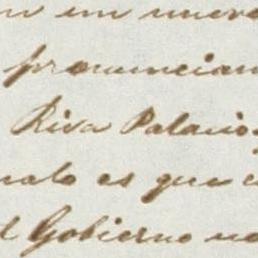 en un nuevo
pronuncian
Riva Palacio
malo es que e
l Gobierno no